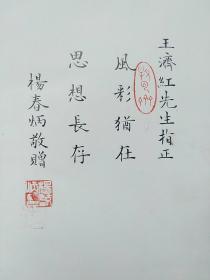 王濟紅先生指正
風彩猶在
思想長存
楊春炳敬贈